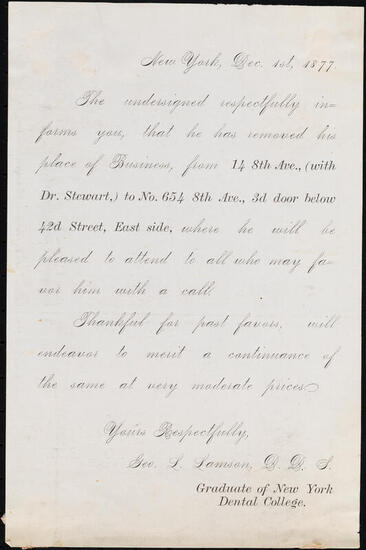 New York, Dec. 1st, 1877.
The undersigned respectfully in=
forms you, that he has removed his
place of Business, from 14 8th Ave., (with
Dr. Stewart,) to No. 654 8th Ave., 3d door below
42d Street, East side, where he will be
pleased to attend to all who may fa=
vor him with a call.
Thankful for past favors, will
endeavor to merit a continuance of
the same at very moderate prices
Yours Respectfully,
Geo. L. Samson, D. D. S.
Graduate of New York
Dental College.